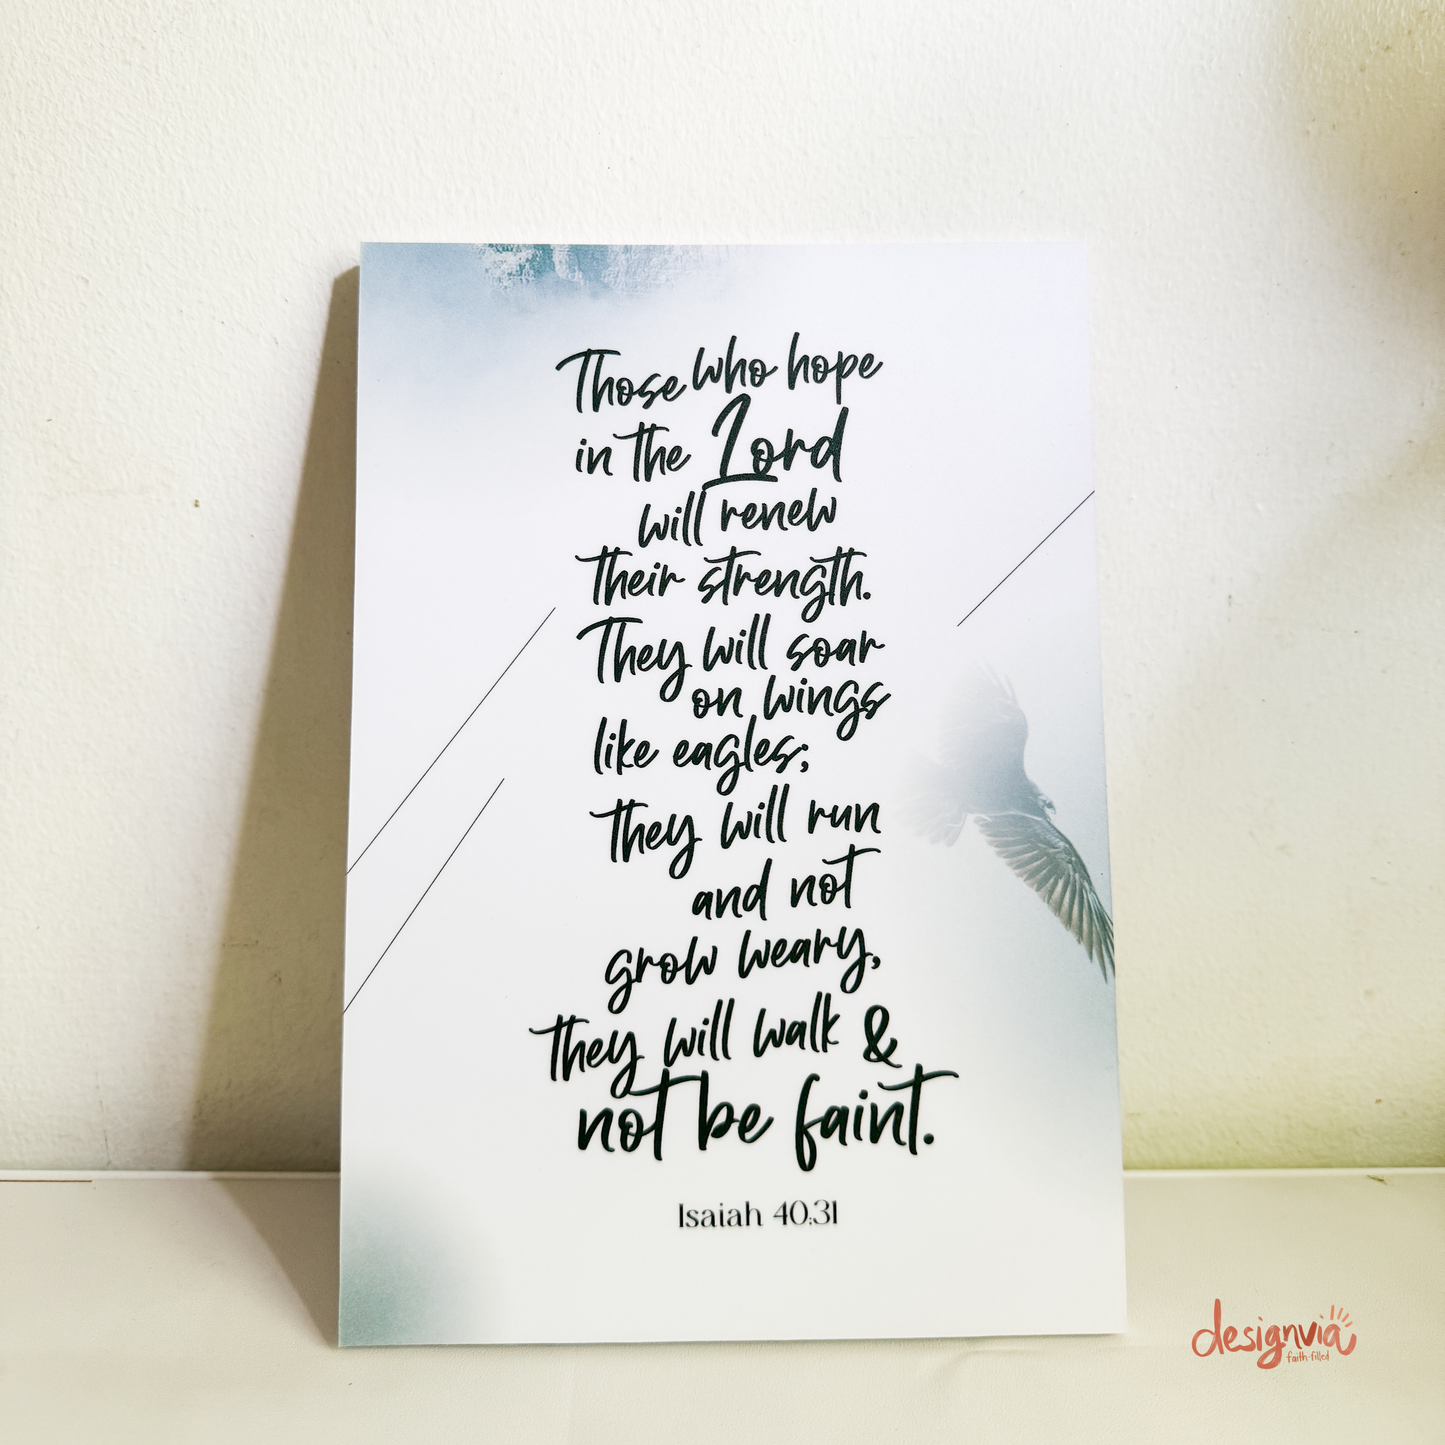 Those who hope
in the Lord
will renew
their strength.
They will soar
on wings
like eagles;
they will run
and not
grow weary,
they will walk &
not be faint.
Isaiah 40:31
designvia
faith-filled